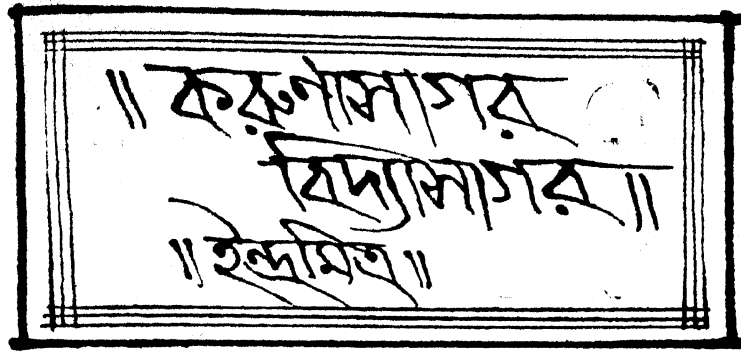 ॥ করুণাসাগর
বিদ্যাসাগর ॥
॥ ইন্দ্রমিত্র ॥